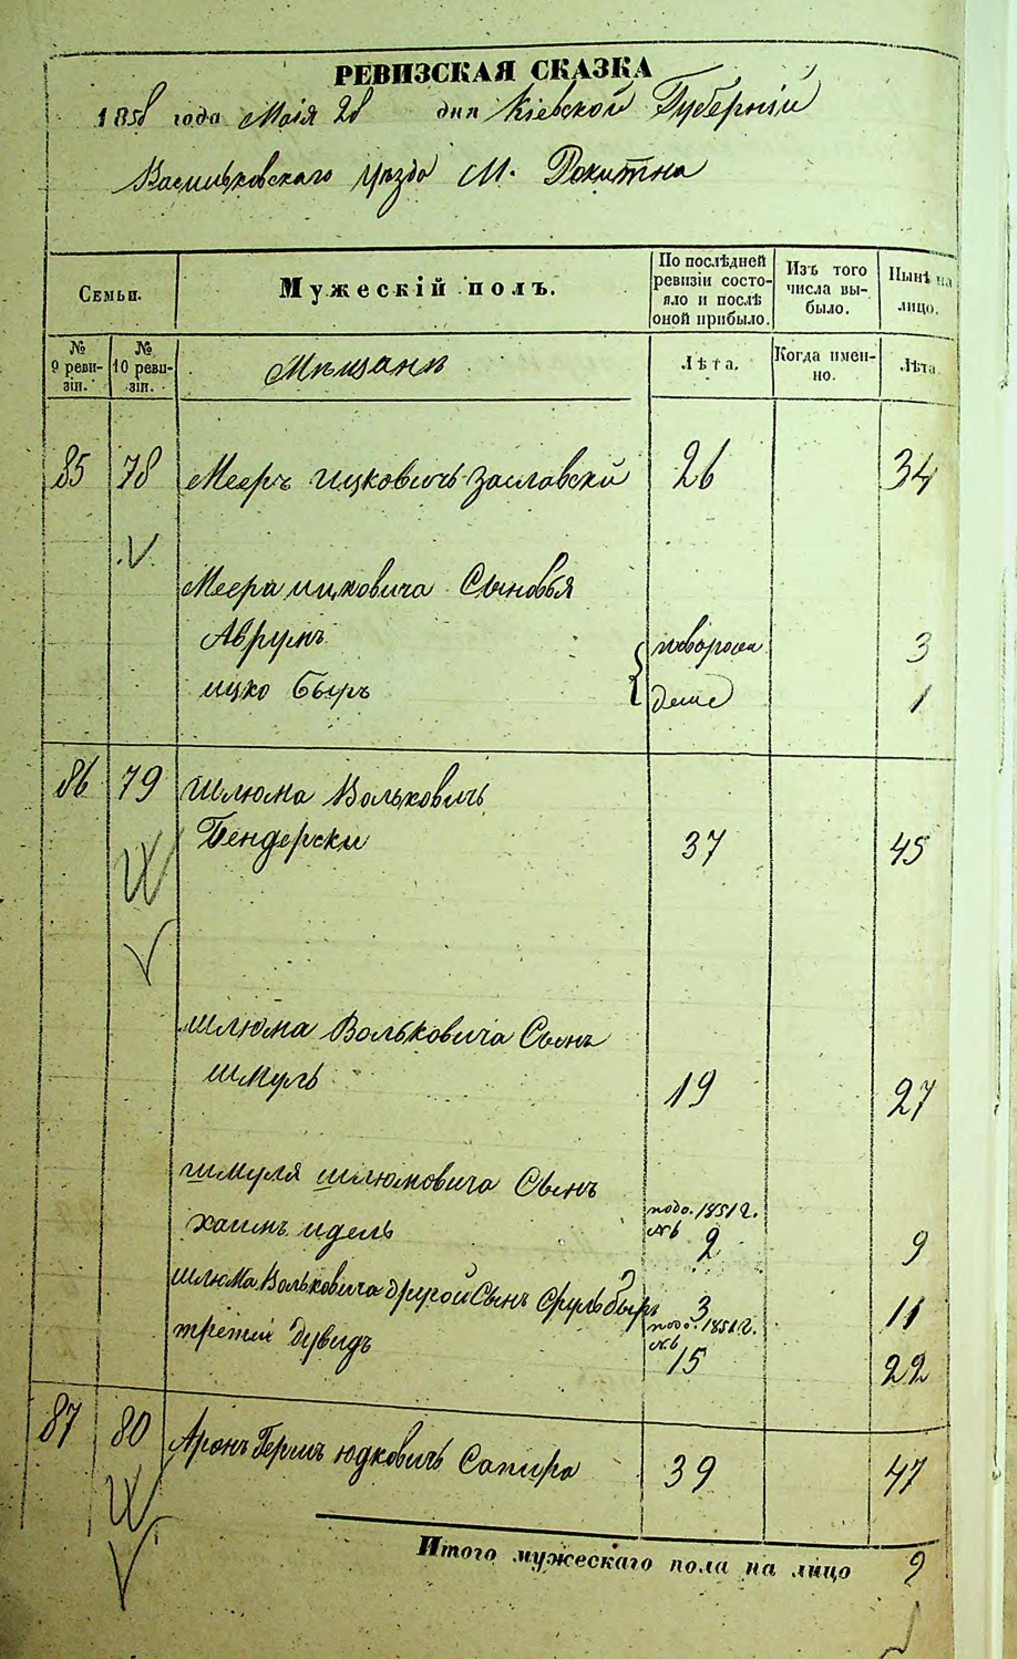 РЕВИЗСКАЯ СКАЗКА
1858 года Маія 28 дня Кіевской Губерніи
Васильковскаго уѣзда М. Рокитна
Семьи.
Мужескій полъ.
По послѣдней ревизіи состояло и послѣ оной прибыло.
Изъ того числа выбыло.
Нынѣ на лицо.
№ 9 ревизіи.
№ 10 ревизіи.
Мѣщане
Лѣта.
Когда именно.
Лѣта.
85 78 Мееръ ицковичъ Заславски 26 34
Меера ицковича Сыновья
Аврумъ новорож 3
ицко Беръ дение 1
86 79 Шлюма Вольковичъ
Бендерски 37 45
Шлюма Вольковича Сынъ
шмуль 19 27
шмуля шлюмовича Сынъ
хаимъ идель 1851 г. №6 2 9
Шлюма Вольковича другой Сынъ Сруль беръ 3 11
третий Дувидъ 1851 г. №6 15 22
87 80 Аронъ Гершъ юдковичъ Сапира 39 47
Итого мужескаго пола на лицо 9